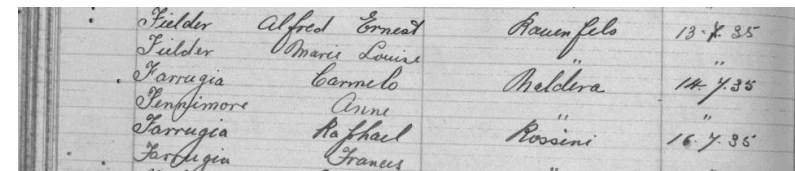 Fielder Alfred Ernest Rauenfels 13.7.35
Fielder Marie Louise "
Farrugia Carmelo Maldera 14.7.35
Fennimore Anne " "
Farrugia Raphael Rossini 16.7.35
Farrugia Frances "